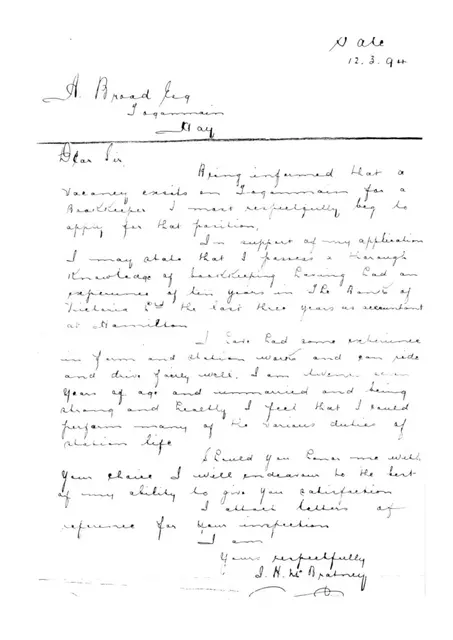 Sale
12.3.94
A. Broad Esq
Toganmain
Hay
Dear Sir
Being informed that a
vacancy exists on Toganmain for a
Bookkeeper I most respectfully beg to
apply for that position.
In support of my application
I may state that I possess a thorough
knowledge of bookkeeping having had an
experience of ten years in The Bank of
Victoria Ltd the last three years as accountant
at Hamilton
I have had some experience
in farm and station work and can ride
and drive fairly well. I am twenty
years of age and unmarried and being
strong and healthy I feel that I could
perform many of the various duties of
station life
Should you honor me with
your choice I will endeavour to the best
of my ability to give you satisfaction
I attach letters of
reference for your inspection
I am
Yours respectfully